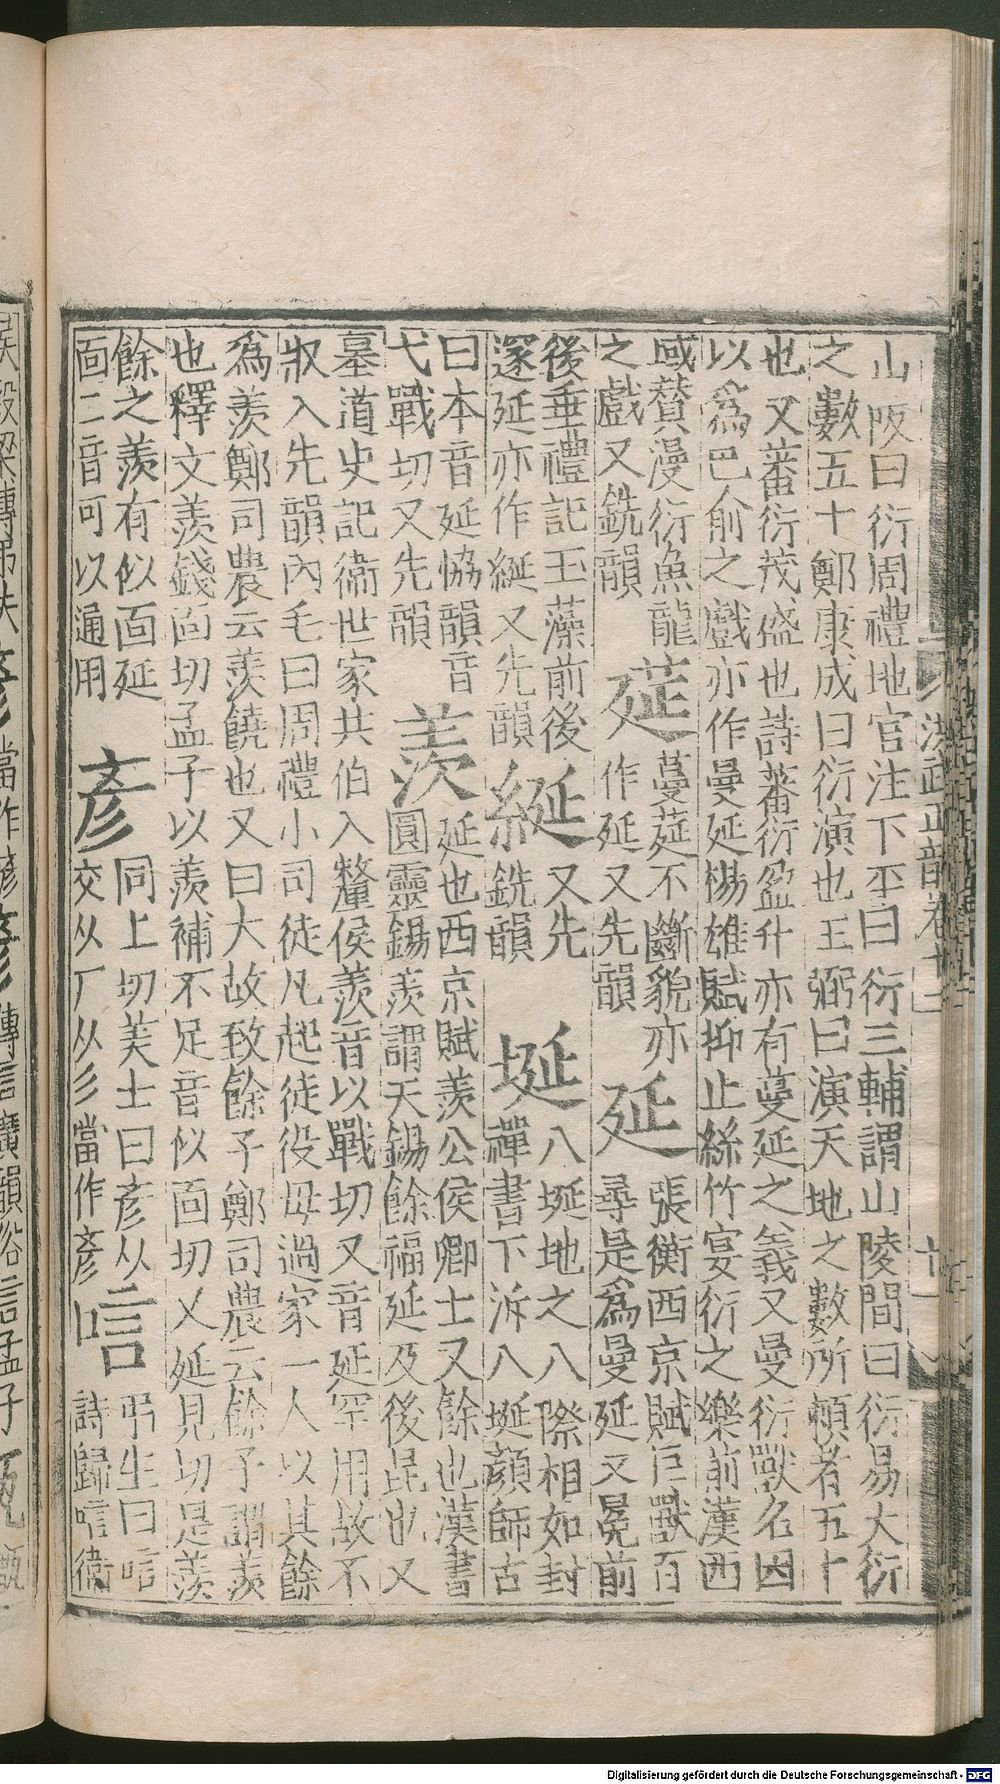 洪武正韻卷十二
山阪曰衍周禮地官注下平曰衍三輔謂山陵間曰衍易大衍
之數五十鄭康成曰衍演也王弼曰演天地之數所頼者五十
也又蕃衍茂盛也詩蕃衍盈升亦有蔓延之義又曼衍獸名因
以爲巴俞之戲亦作曼延楊雄賦抑止絲竹宴衍之樂前漢西
域賛漫衍魚龍
之戲又銑韻
莚
蔓莚不斷貌亦
作延又先韻
延
張衡西京賦巨獸百
尋是爲曼延又冕前
後垂禮記玉藻前後
邃延亦作綖又先韻
綖
又先
銑韻
埏
八埏地之八際相如封
禪書下泝八埏顔師古
曰本音延協韻音
弋戰切又先韻
羨
延也西京賦羨公侯卿士又餘也漢書
圓靈錫羨謂天錫餘福延及後昆也又
墓道史記衛世家共伯入釐侯羨音以戰切又音延罕用故不
収入先韻內毛曰周禮小司徒凡起徒役毋過家一人以其餘
爲羨鄭司農云羨饒也又曰大故致餘子鄭司農云餘子謂羨
也釋文羨錢面切孟子以羨補不足音似面切乂延見切是羨
餘之羨有似面延
面二音可以通用
彥
同上切美士曰彥从
交从厂从彡當作彥
唁
弔生曰唁
詩歸唁衛
Digitalisierung gefördert durch die Deutsche Forschungsgemeinschaft - DFG